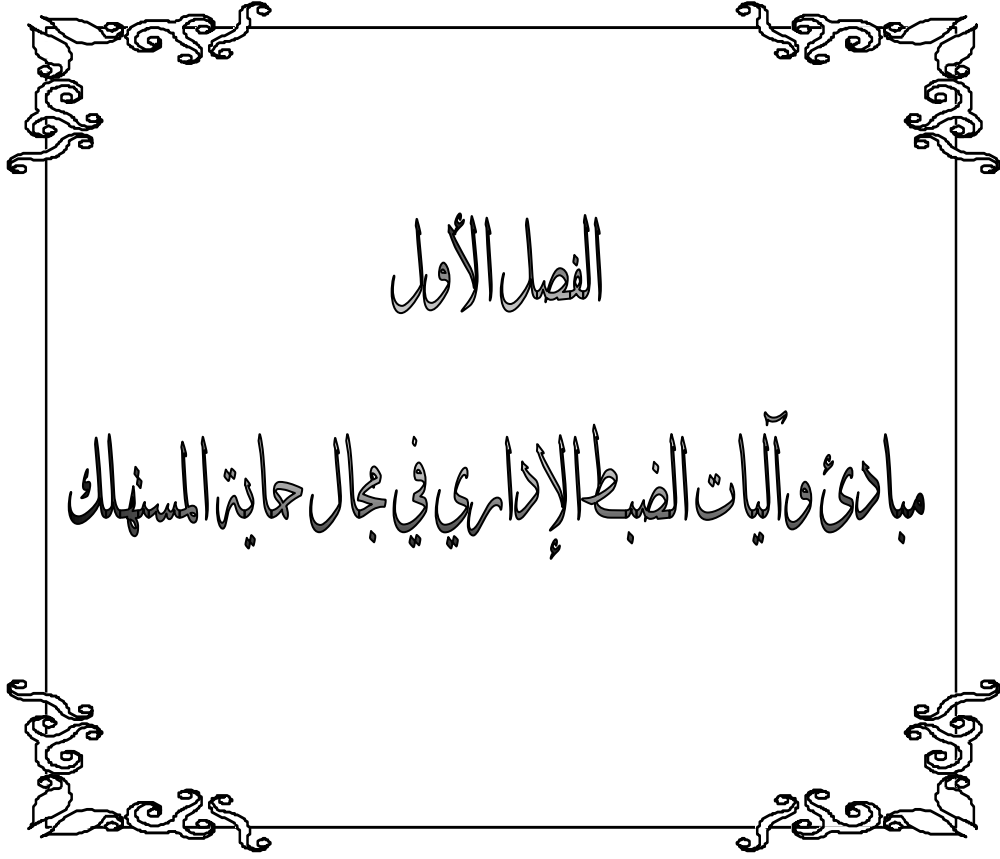 الفصل الأول
مبادئ وآليات الضبط الإداري في مجال حماية المستهلك